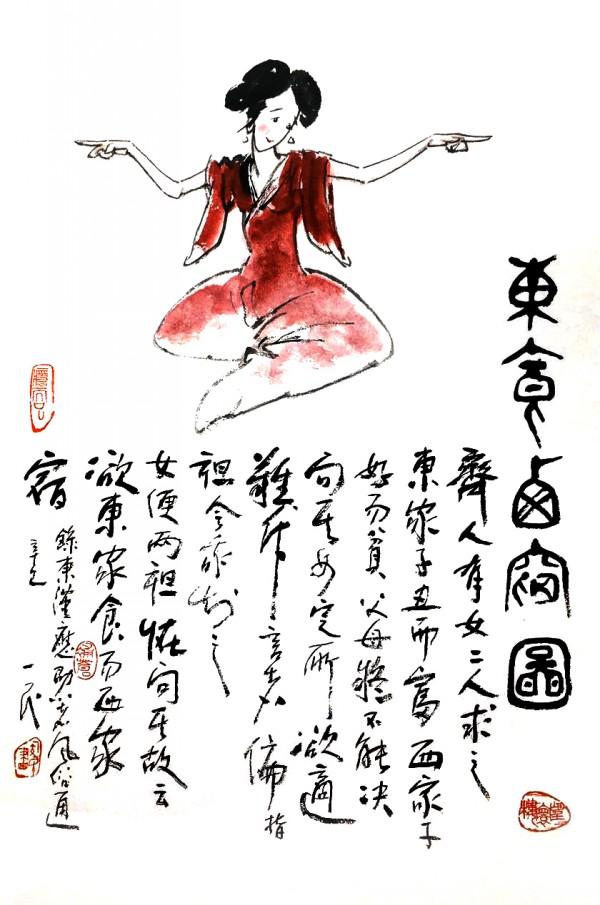 東食西宿圖
齊人有女二人求之
東家子丑而富西家子
好而貧父母疑不能决
问其女定所欲適
難斥言者偏指
袒令我知之
女便兩袒怪问其故云
欲東家食而西家
宿
錄東漢應劭著風俗通
一民